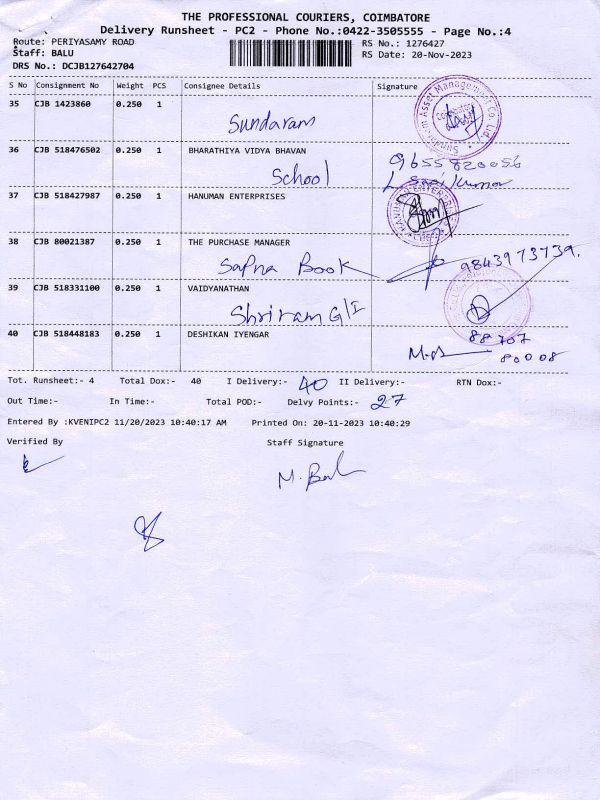 THE PROFESSIONAL COURIERS, COIMBATORE
Delivery Runsheet - PC2 - Phone No.:0422-3505555 - Page No.:4
Route: PERIYASAMY ROAD RS No.: 1276427
Staff: BALU RS Date: 20-Nov-2023
DRS No.: DCJB127642704
S No Consignment No Weight PCS Consignee Details Signature
35 CJB 1423860 0.250 1
Sundaram
Sundaram Asset Management Co. Ltd
Coimbatore
36 CJB 518476502 0.250 1 BHARATHIYA VIDYA BHAVAN 9655820056
School L Sasi Kumar
37 CJB 518427987 0.250 1 HANUMAN ENTERPRISES
HANUMAN ENTERPRISES
38 CJB 80021387 0.250 1 THE PURCHASE MANAGER
Sapna Book 9843973739.
39 CJB 518331100 0.250 1 VAIDYANATHAN
Shriram G/I
40 CJB 518448183 0.250 1 DESHIKAN IYENGAR 88707
80008
Tot. Runsheet:- 4 Total Dox:- 40 I Delivery:- 40 II Delivery:- RTN Dox:-
Out Time:- In Time:- Total POD:- Delvy Points:- 27
Entered By :KVENIPC2 11/20/2023 10:40:17 AM Printed On: 20-11-2023 10:40:29
Verified By Staff Signature